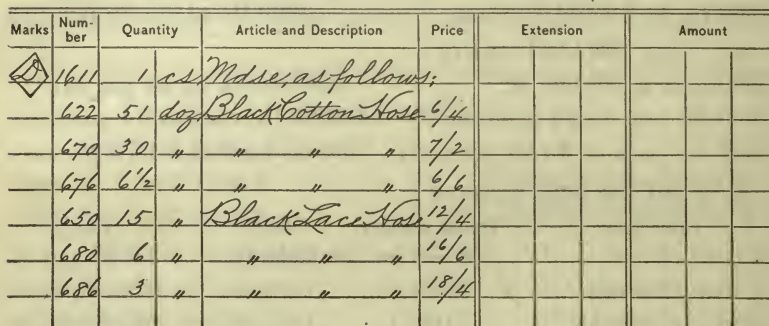 Marks Num-ber Quantity Article and Description Price Extension Amount
D 1611 1 cs Mdse, as follows;
622 51 doz Black Cotton Hose 6/4
670 30 " " " " 7/2
676 6 1/2 " " " " 6/6
650 15 " Black Lace Hose 12/4
680 6 " " " " 16/6
686 3 " " " " 18/4